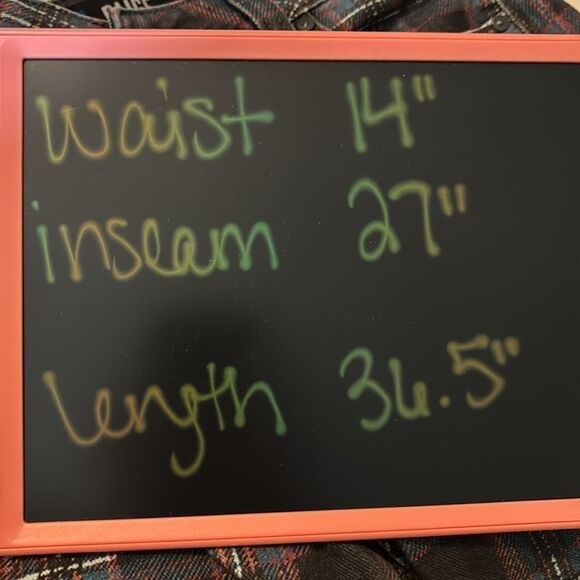 waist 14"
inseam 27"
length 36.5"